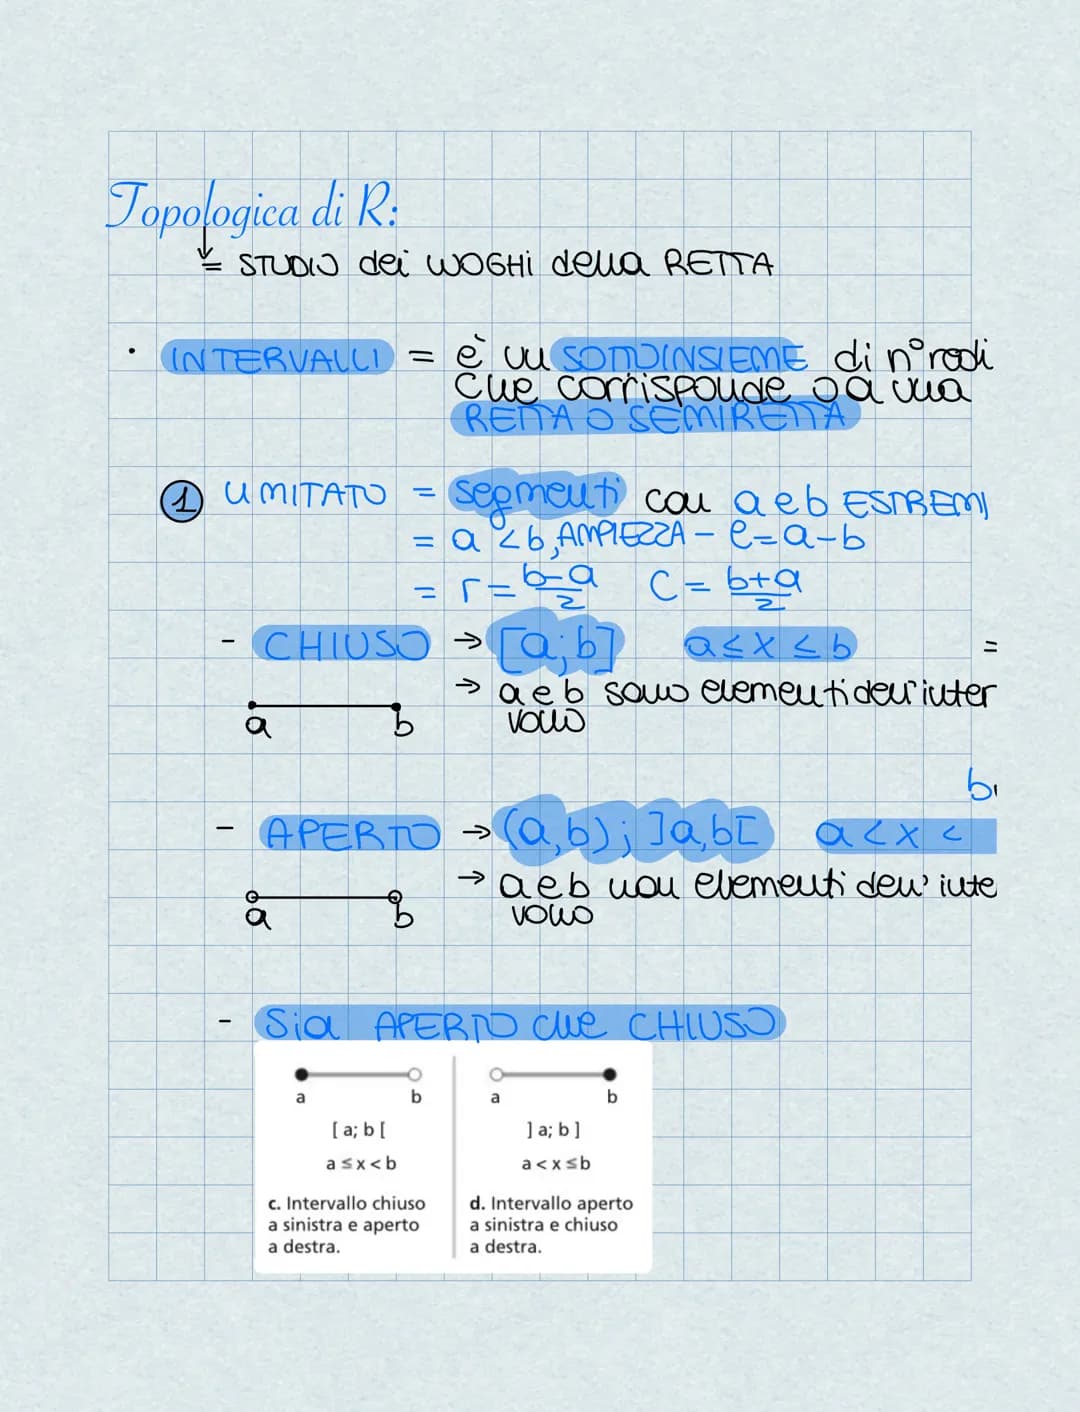 Topologica di R:
= STUDIO dei LUOGHI della RETTA
· INTERVALLI = è un SOTTOINSIEME di n° reali
che corrisponde o a una
RETTA O SEMIRETTA
1 LIMITATO = segmenti con a e b ESTREMI
= a < b, AMPIEZZA - e = a - b
= r = b-a/2 C = b+a/2
- CHIUSO → [a;b] a ≤ x ≤ b =
→ a e b sono elementi dell'inter
vallo
a b
- APERTO → (a,b); ]a,b[ a < x <
→ a e b non elementi dell'inte
vallo
a b
- Sia APERTO che CHIUSO
a b
[ a; b [
a ≤ x < b
c. Intervallo chiuso
a sinistra e aperto
a destra.
a b
] a; b ]
a < x ≤ b
d. Intervallo aperto
a sinistra e chiuso
a destra.